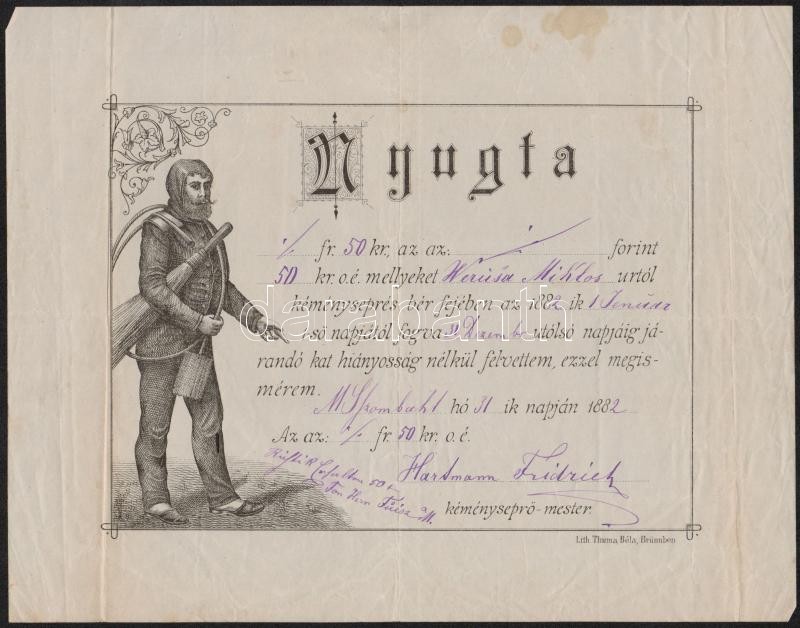 Nyugta
./. fr. 50 kr., az az: ./. forint
50 kr. o. é. mellyeket Werúsa Miklos urtól
kéményseprés bér fejében az 1882 ik 1 Januar
1-ső napjától fogva 31 Dezemb utólsó napjáig já-
randó kat hiányosság nélkül felvettem, ezzel megis-
mérem.
M hó 31 ik napján 1882
Az az: ./. fr. 50 kr. o. é.
Hartmann Fridrich
50
Herrn
kéményseprő-mester.
Lith. Thuma Béla, Brünnben
darabanth